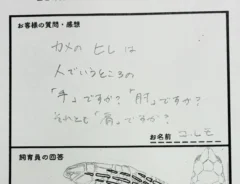 お客様の質問・感想
カメのヒレは
人でいうところの
「手」ですか?「肘」ですか?
それとも「肩」ですか?
お名前
飼育員の回答